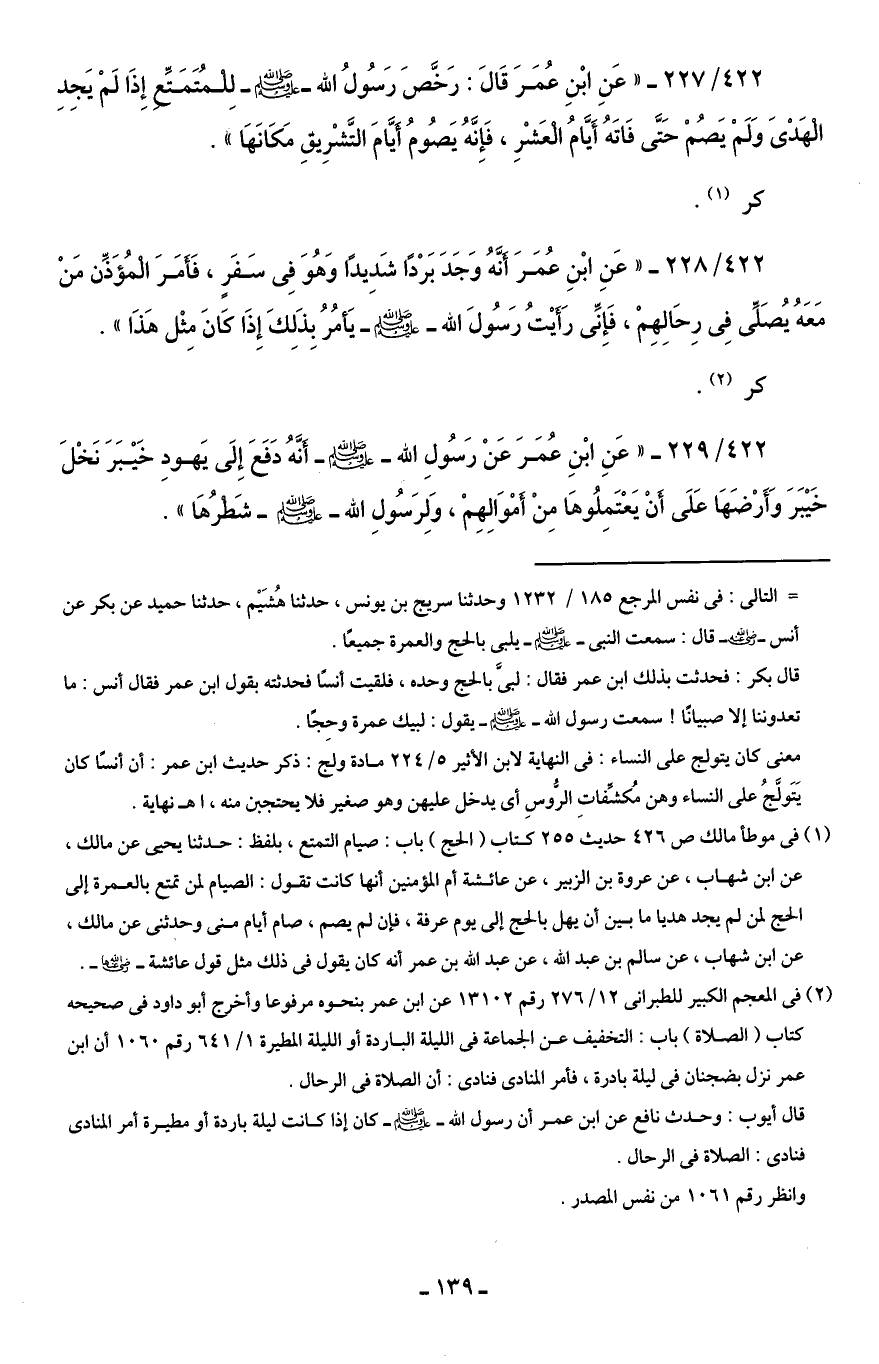 ٢٢٧/٤٢٢ ـ « عَنِ ابْنِ عُمَرَ قَالَ : رَخَّصَ رَسُولُ الله ـ ﷺ ـ لِلْمُتَمَتِّعِ إِذَا لَمْ يَجِدِ
الْهَدْىَ وَلَمْ يَصُمْ حَتَّى فَاتَهُ أَيَّامُ الْعَشْرِ ، فَإِنَّهُ يَصُومُ أَيَّامَ التَّشْرِيقِ مَكَانَهَا » .
كر (١) .
٢٢٨/٤٢٢ ـ « عَنِ ابْنِ عُمَرَ أَنَّهُ وَجَدَ بَرْدًا شَدِيدًا وَهُوَ فِى سَفَرٍ ، فَأَمَرَ الْمُؤَذِّن مَنْ
مَعَهُ يُصَلِّى فِى رِحَالِهِمْ ، فَإِنِّى رَأَيْتُ رَسُولَ الله ـ ﷺ ـ يَأمُرُ بِذَلِكَ إِذَا كَانَ مِثْل هَذَا » .
كر (٢) .
٢٢٩/٤٢٢ ـ « عَنِ ابْنِ عُمَرَ عَنْ رَسُولِ الله ـ ﷺ ـ أَنَّهُ دَفَعَ إِلَى يَهودِ خَيْبَرَ نَخْلَ
خَيْبَرَ وَأَرْضَهَا عَلَى أَنْ يَعْتَمِلُوهَا مِنْ أَمْوَالِهِمْ ، وَلِرَسُولِ الله ـ ﷺ ـ شَطْرُهَا » .
= التالى : فى نفس المرجع ١٨٥ / ١٢٣٢ وحدثنا سريج بن يونس ، حدثنا هُشَيْم ، حدثنا حميد عن بكر عن
أنس ـ رضي الله عنه ـ قال : سمعت النبى ـ ﷺ ـ يلبى بالحج والعمرة جميعًا .
قال بكر : فحدثت بذلك ابن عمر فقال : لبىَّ بالحج وحده ، فلقيت أنسًا فحدثته بقول ابن عمر فقال أنس : ما
تعدوننا إلا صبيانًا ! سمعت رسول الله ـ ﷺ ـ يقول : لبيك عمرة وحجًا .
معنى كان يتولج على النساء : فى النهاية لابن الأثير ٥/ ٢٢٤ مادة ولج : ذكر حديث ابن عمر : أن أنسًا كان
يَتَولَّجُ على النساء وهن مُكشِّفات الرُّوس أى يدخل عليهن وهو صغير فلا يحتجبن منه ، ا هـ نهاية .
(١) فى موطأ مالك ص ٤٢٦ حديث ٢٥٥ كتاب ( الحج ) باب : صيام التمتع ، بلفظ : حدثنا يحيى عن مالك ،
عن ابن شهاب ، عن عروة بن الزبير ، عن عائشة أم المؤمنين أنها كانت تقول : الصيام لمن تمتع بالعمرة إلى
الحج لمن لم يجد هديا ما بين أن يهل بالحج إلى يوم عرفة ، فإن لم يصم ، صام أيام منى وحدثنى عن مالك ،
عن ابن شهاب ، عن سالم بن عبد الله ، عن عبد الله بن عمر أنه كان يقول فى ذلك مثل قول عائشة ـ رضي الله عنها ـ .
(٢) فى المعجم الكبير للطبرانى ١٢/ ٢٧٦ رقم ١٣١٠٢ عن ابن عمر بنحوه مرفوعا وأخرج أبو داود فى صحيحه
كتاب ( الصلاة ) باب : التخفيف عن الجماعة فى الليلة الباردة أو الليلة المطيرة ١/ ٦٤١ رقم ١٠٦٠ أن ابن
عمر نزل بضجنان فى ليلة بادرة ، فأمر المنادى فنادى : أن الصلاة فى الرحال .
قال أيوب : وحدث نافع عن ابن عمر أن رسول الله ـ ﷺ ـ كان إذا كانت ليلة باردة أو مطيرة أمر المنادى
فنادى : الصلاة فى الرحال .
وانظر رقم ١٠٦١ من نفس المصدر .
ـ ١٣٩ ـ